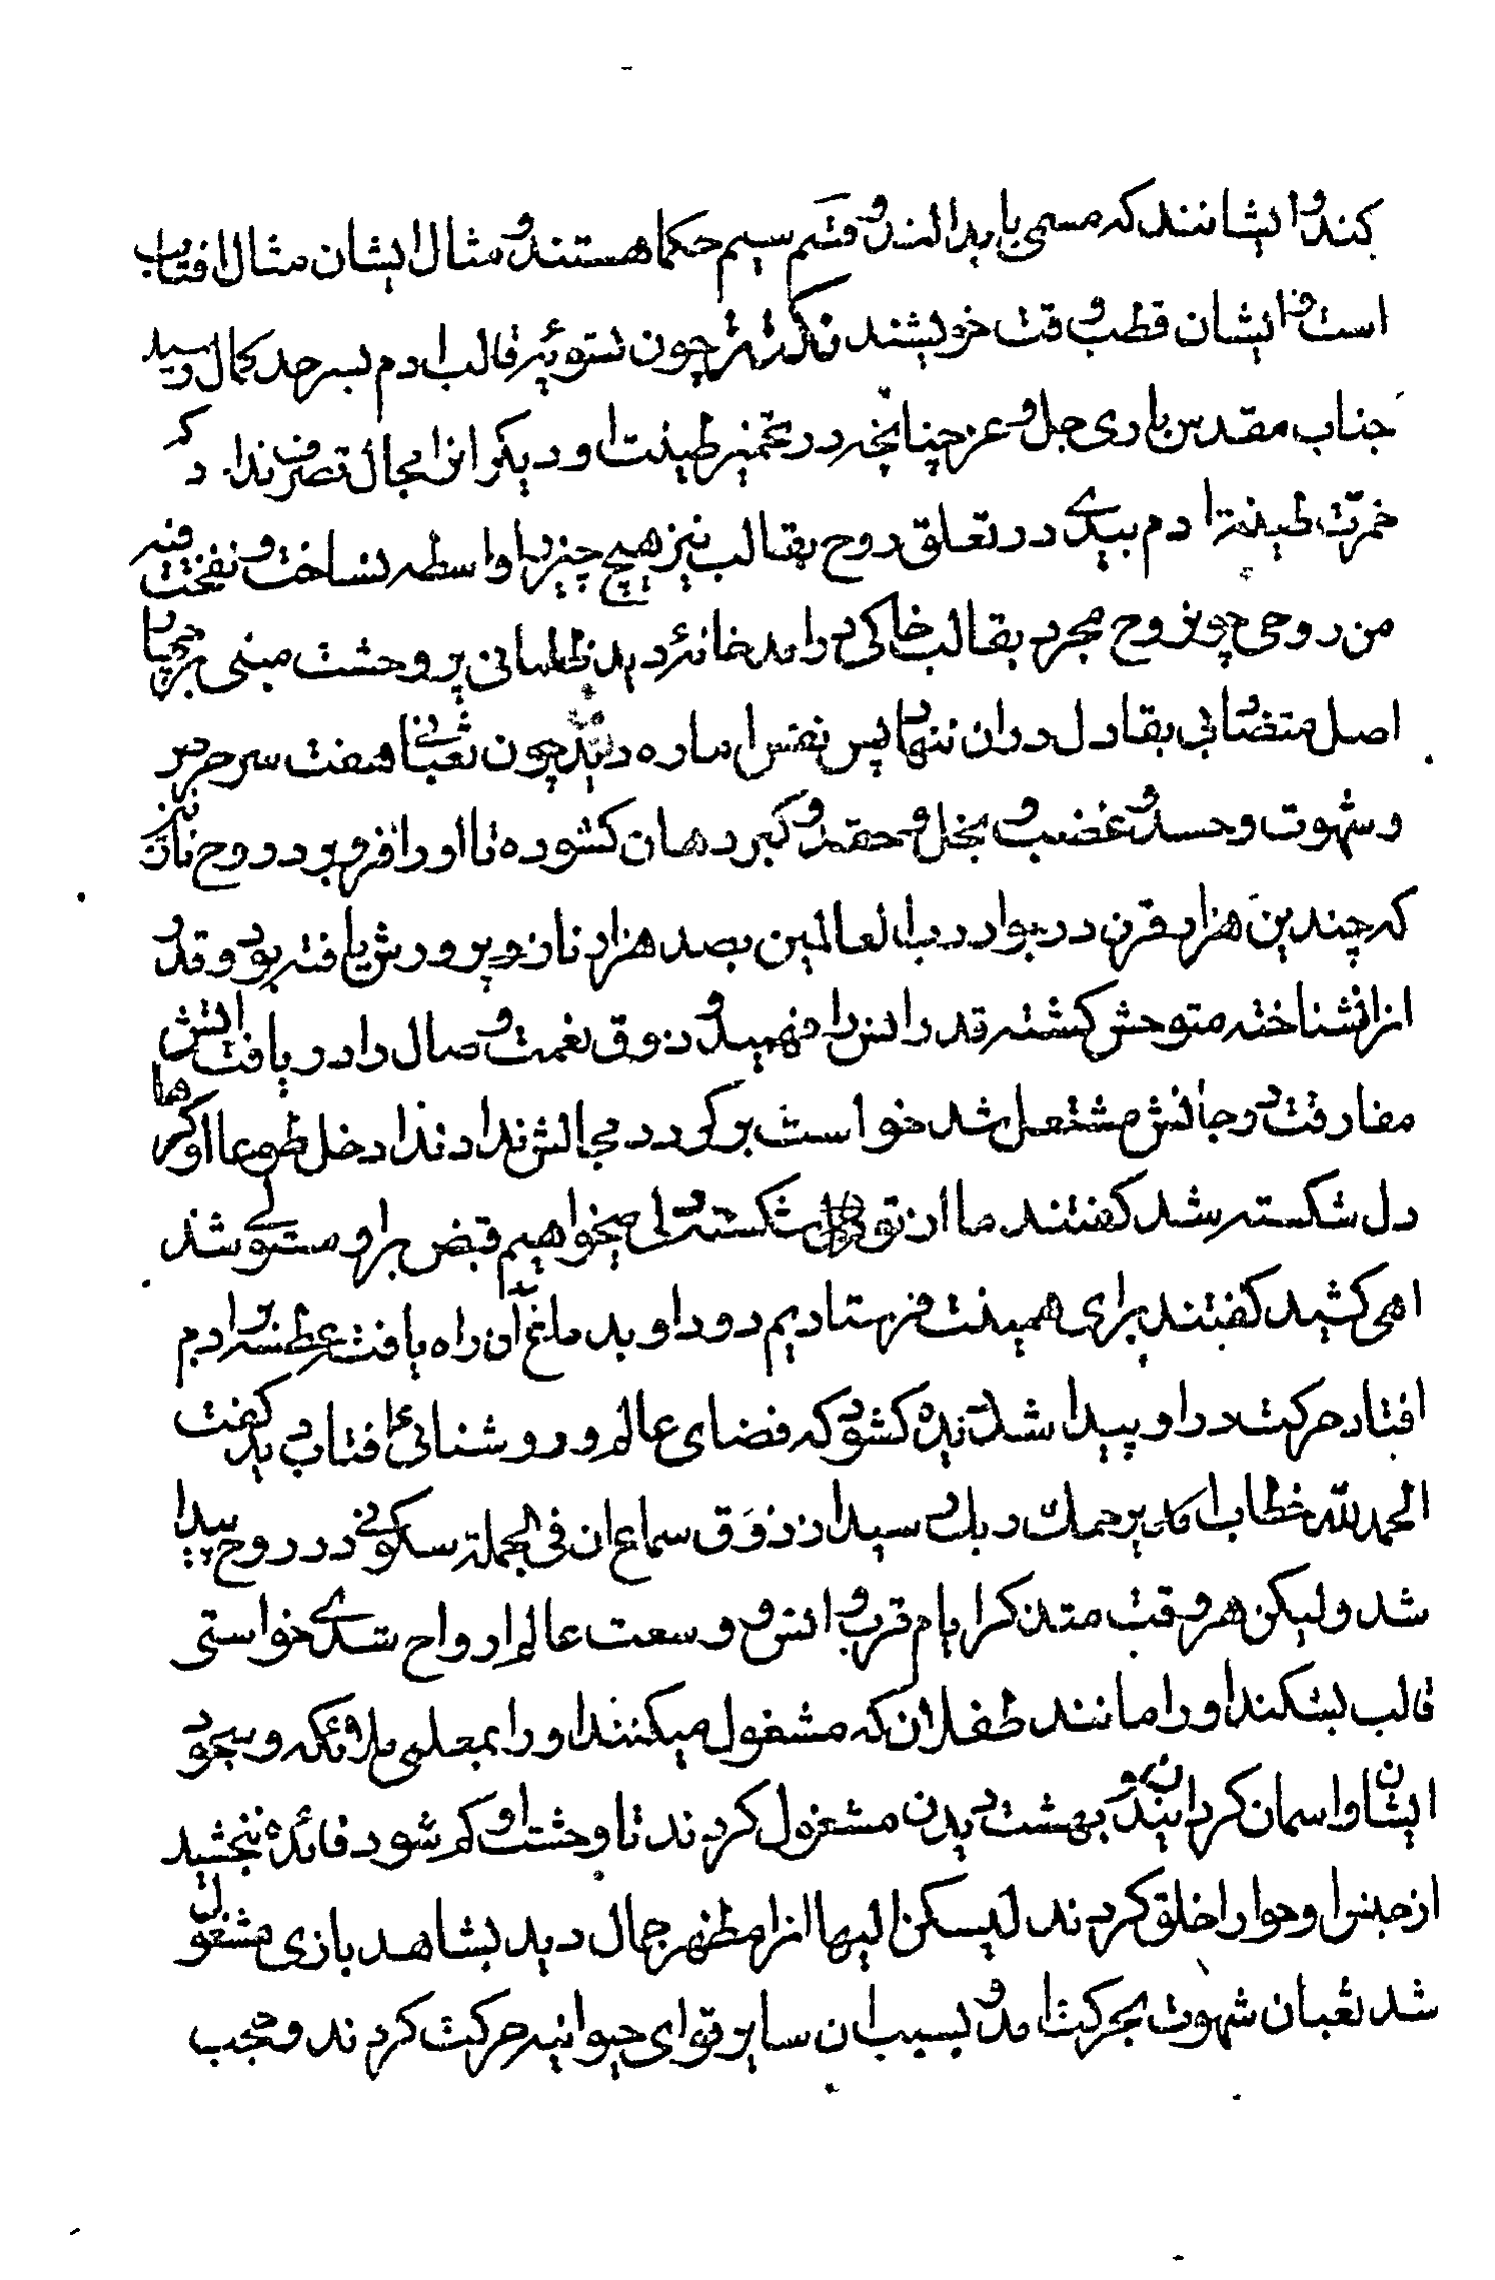 کند و ایشانند که مسمی بابدالند و قسم سیم حکما هستند و مثال ایشان مثال افتاب
است و ایشان قطب وقت خویشند تذکرة چون تسویۀ قالب ادم بسر حد کمال رسید
جناب مقدس باری جل و عز چنانچه در تخمیر طینت او دیگرانرا مجال تصرف نداد که
خمرت طینة ادم بیدی در تعلق روح بقالب نیز هیچ چیز را واسطه نساخت و نفخت فیه
من روحی چون روح مجرد بقالب خاکی درامد خانۀ دید ظلمانی پر وحشت مبنی بر چهار
اصل متضاد بی بقا دل دران ننهاد پس نفس اماره دید چون ثعبانی هفت سر حرص
و شهوت و حسد و غضب و بخل و حقد و کبر دهان کشوده تا او را فرو برد روح نازنین
که چندین هزار قرن در جوار رب العالمین بصد هزار ناز و پرورش یافته بود و قدر
انرا نشناخته متوحش کشته قدر انس را فهمید و ذوق نعمت وصال را دریافت اتش
مفارقت در جانش مشتعل شد خواست بر کردد مجالش ندادند ادخل طوعا او کرها
دل شکسته شد کفتند ما از تو دل شکستکی میخواهیم قبض بر او مستولی شد
اهی کشید کفتند برای همینت فرستادیم دود او بدماغ ان راه یافت عطسه بر ادم
افتاد حرکت در او پیدا شد دیده کشود که فضای عالم و روشنائی افتاب دید کفت
الحمد لله خطاب امد یرحمك ربك رسید از ذوق سماع ان فی الجملة سکونی در روح پیدا
شد ولیکن هر وقت متذکر ایام قرب و انس و وسعت عالم ارواح شدی خواستی
قالب بشکند او را مانند طفلان که مشغول میکنند او را بمعلمی ملائکه و سجود
ایشان و اسمان کردانیدن و بهشت دیدن مشغول کردند تا وحشت او کم شود فائده نبخشید
از جنس او حوا را خلق کردند لیسکن الیها انرا مظهر جمال دید بشاهد بازی مشغول
شد ثعبان شهوت بحرکت امد و بسبب ان سایر قوای حیوانیه حرکت کردند و حجب